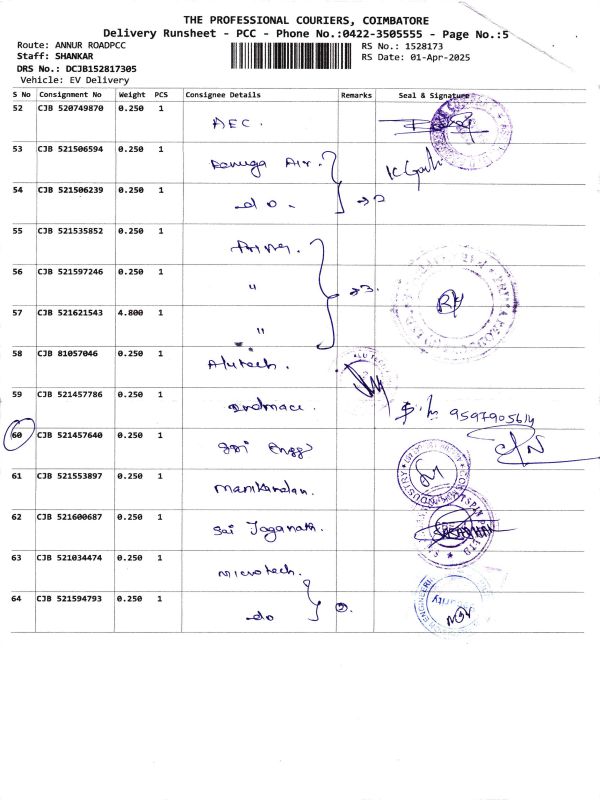 THE PROFESSIONAL COURIERS, COIMBATORE
Delivery Runsheet - PCC - Phone No.:0422-3505555 - Page No.:5
Route: ANNUR ROADPCC
RS No.: 1528173
Staff: SHANKAR
RS Date: 01-Apr-2025
DRS No.: DCJB152817305
Vehicle: EV Delivery
S No Consignment No Weight PCS Consignee Details Remarks Seal & Signature
52 CJB 520749870 0.250 1 AEC.
53 CJB 521506594 0.250 1 Air.
54 CJB 521506239 0.250 1 do.
55 CJB 521535852 0.250 1
56 CJB 521597246 0.250 1 "
57 CJB 521621543 4.800 1 "
58 CJB 81057046 0.250 1 Alutech.
59 CJB 521457786 0.250 1
60 CJB 521457640 0.250 1 Sri Enggs
61 CJB 521553897 0.250 1 Manikandan.
62 CJB 521600687 0.250 1 Sai Jaganath.
63 CJB 521034474 0.250 1 Microtech.
64 CJB 521594793 0.250 1 do